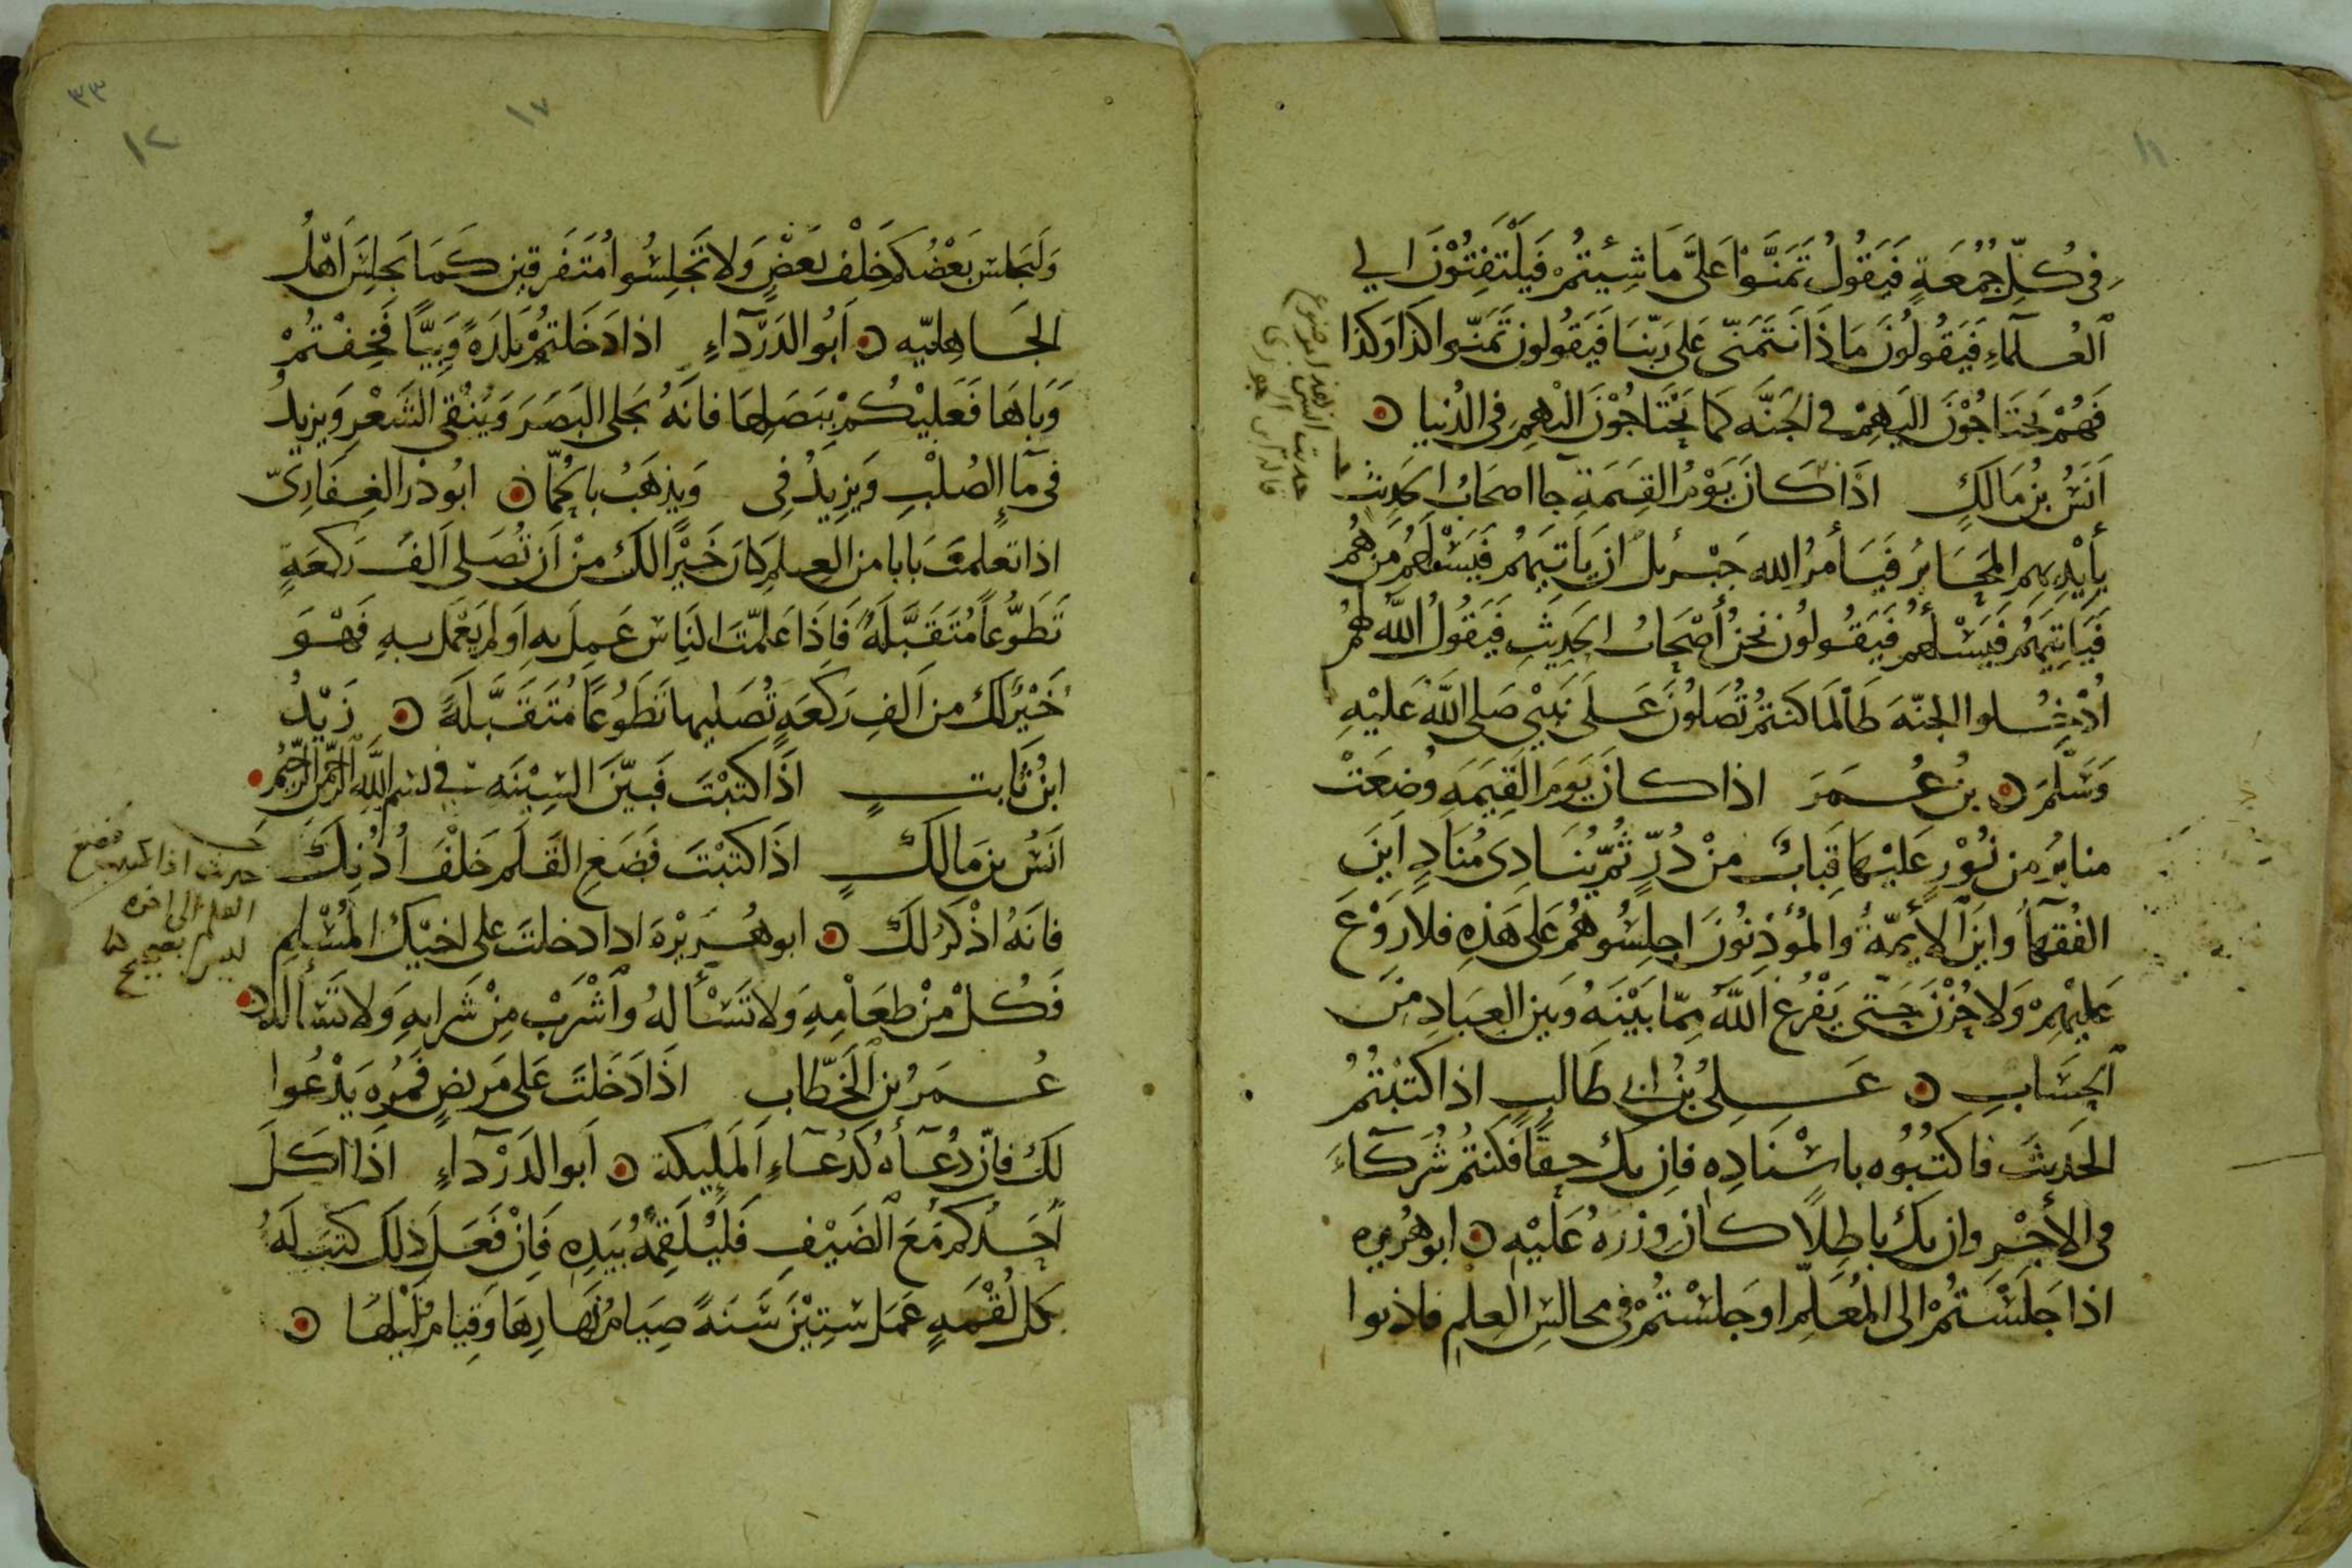 في كُلِّ جُمُعَةٍ فَيَقُولُ تَمَنَّوْا عَلَىَّ مَا شِيْتُمْ فَيَلْتَفِتُوْنَ الي
العُلَمآءِ فَيَقُولُونَ مَاذَا نَتَمَنّى عَلى رَبّنَا فَيَقُولون تَمَنّوا كَذا وَكَذا
فَهُمْ يَحتَاجُوْنَ اليَهِمْ في الجَنَّه كما يَحْتَاجُوْنَ اليْهِم في الدُنيا
اَنَسُ بنُ مَالكٍ اذَا كَانَ يَوْمُ القِيَمَةِ جا اصحَابُ الحَدِيثِ
بأيْدِيهِم المحَابِرُ فَيَأمرُ الله جَبْرئلَ ان يَاتيَهُمْ فَيَسْلَهم مَن هُمْ
فَيَاتِيَهُم فَيَسْألهُم فَيَقُولونُ نحنُ أصْحَابُ الحَدِيثِ فَيَقُولُ اللهُ لهُمُ
اُدْخُلوا الجنّه طَالما كنتمْ تُصَلُونَ عَلَى نَبيّى صَلى اللهُ عَليْهِ
وَسَلّمَ بنُ عُمَرَ اذا كانَ يَومَ القِيَمَةِ وُضِعَتْ
منابرُ من نُوْرٍ عَليْهَا قِبَابٌ منْ دُرٍّ ثُمّ يُنَادِى مُنَادٍ اَينَ
الفُقهآُ واينَ الأيمّةُ والمُؤذنُونَ اجلِسُوهُم عَلى هَذِهِ فلا رَوْعَ
عَليْهِمْ وَلا حُزْنَ حَتّى يَفْرُغ اللهَ ممّا بَيْنَهُ وَبَين العِبَادِ مِنَ
الحِسَابِ عَلىُ بنُ ابى طَالبٍ اذا كتَبْتُمُ
الحَديثَ فاكتُبُوه باسْنَادِهِ فان يكُ حقًا فكنتُم شُرَكآءَ
فى الأجْرِ وان يكُ بَاطِلًا كان وزرهُ عَليْهِ ابو هُريره
اذا جَلَسْتُمْ الى المُعَلّم او جَلسْتُمْ في مجالسِ العِلم فاذنوا
حديث انس هذا موضوع
قاله ابن الجوزى
وَليَجلس بَعْضُكمْ خَلْف بَعَضٍ وَلا تَجْلِسُوا مُتَفَرقين كَمَا يَجلِسَ اَهْلُ
الجَاهِليّه اَبُو الدَرْدَاءِ اذا دَخَلتُمْ بَلدَةً وَبِيًّا فَخِفْتُمْ
وَبَاهَا فَعَليْكُمْ بِبَصَلِهَا فانَهُ يَجلى البَصَرَ وَيُنْقى الشَعْرِ وَيزيدُ
فى مآ الصُلْبِ وَيَزِيدُ فِى وَيذهَبُ بالحُمّا ابُو ذر الغِفَارِىّ
اذا تعلمتَ بَابا من العِلمِ كانَ خَيْرًا لكَ مِنْ اَن تُصَلى اَلفَ رَكعَةٍ
تَطَوُّعاً مُتَقَبَّلةً فَاذَا عَلمّتَ النَاسَ عَمِلَ بهِ اَو لم يَعْمَل بهِ فَهْوَ
خَيْرٌ لكَ من اَلفِ رَكعَةٍ تُصَليها تَطَوُعًا مُتَقَبَّلةً زَيْدُ
ابنُ ثَابتٍ اذَا كتَبْتَ فَبَيّنَ السِيْنَه في بسم اللهِ الرّحمن الرّحِيم
اَنَسُ بن مَالكٍ اذَا كتَبْتَ فَضَعِ القَلَم خَلْفَ اُذُنِكَ
فانَهُ اذْكَرُ لكَ ابو هُرَيْرَة اذا دخلتَ على اخيْكَ المُسْلِمِ
فَكُلْ منْ طعَامِهِ وَلا تَسْألهُ واشْرَبْ مِنْ شَرابِهِ وَلا تَسْألهُ
عُمَرُ بن الخَطّابِ اذَا دَخَلتَ عَلى مَريضٍ فَمُرهِ يَدْعُوا
لكَ فانّ دُعَآهُ كَدُعَآءِ المَلَيكة اَبو الدَرْدَآءِ اذَا اكَلَ
اَحَدُكم مَعَ الضَيْفِ فَليُلَقِمْهُ بيَدِهِ فَاِنْ فَعَلَ ذَلكَ كتبَ لَهُ
بكل لُقْمَهٍ عَمَل سِتِيْنَ سَنَةً صِيَامُ نَهَارِهَا وَقِيَامُ لَيْلهَا
حديث اذا كتبت فضع
القلم الى اخره
ليس بصحيح
٣٣
١٢
١٧
١١